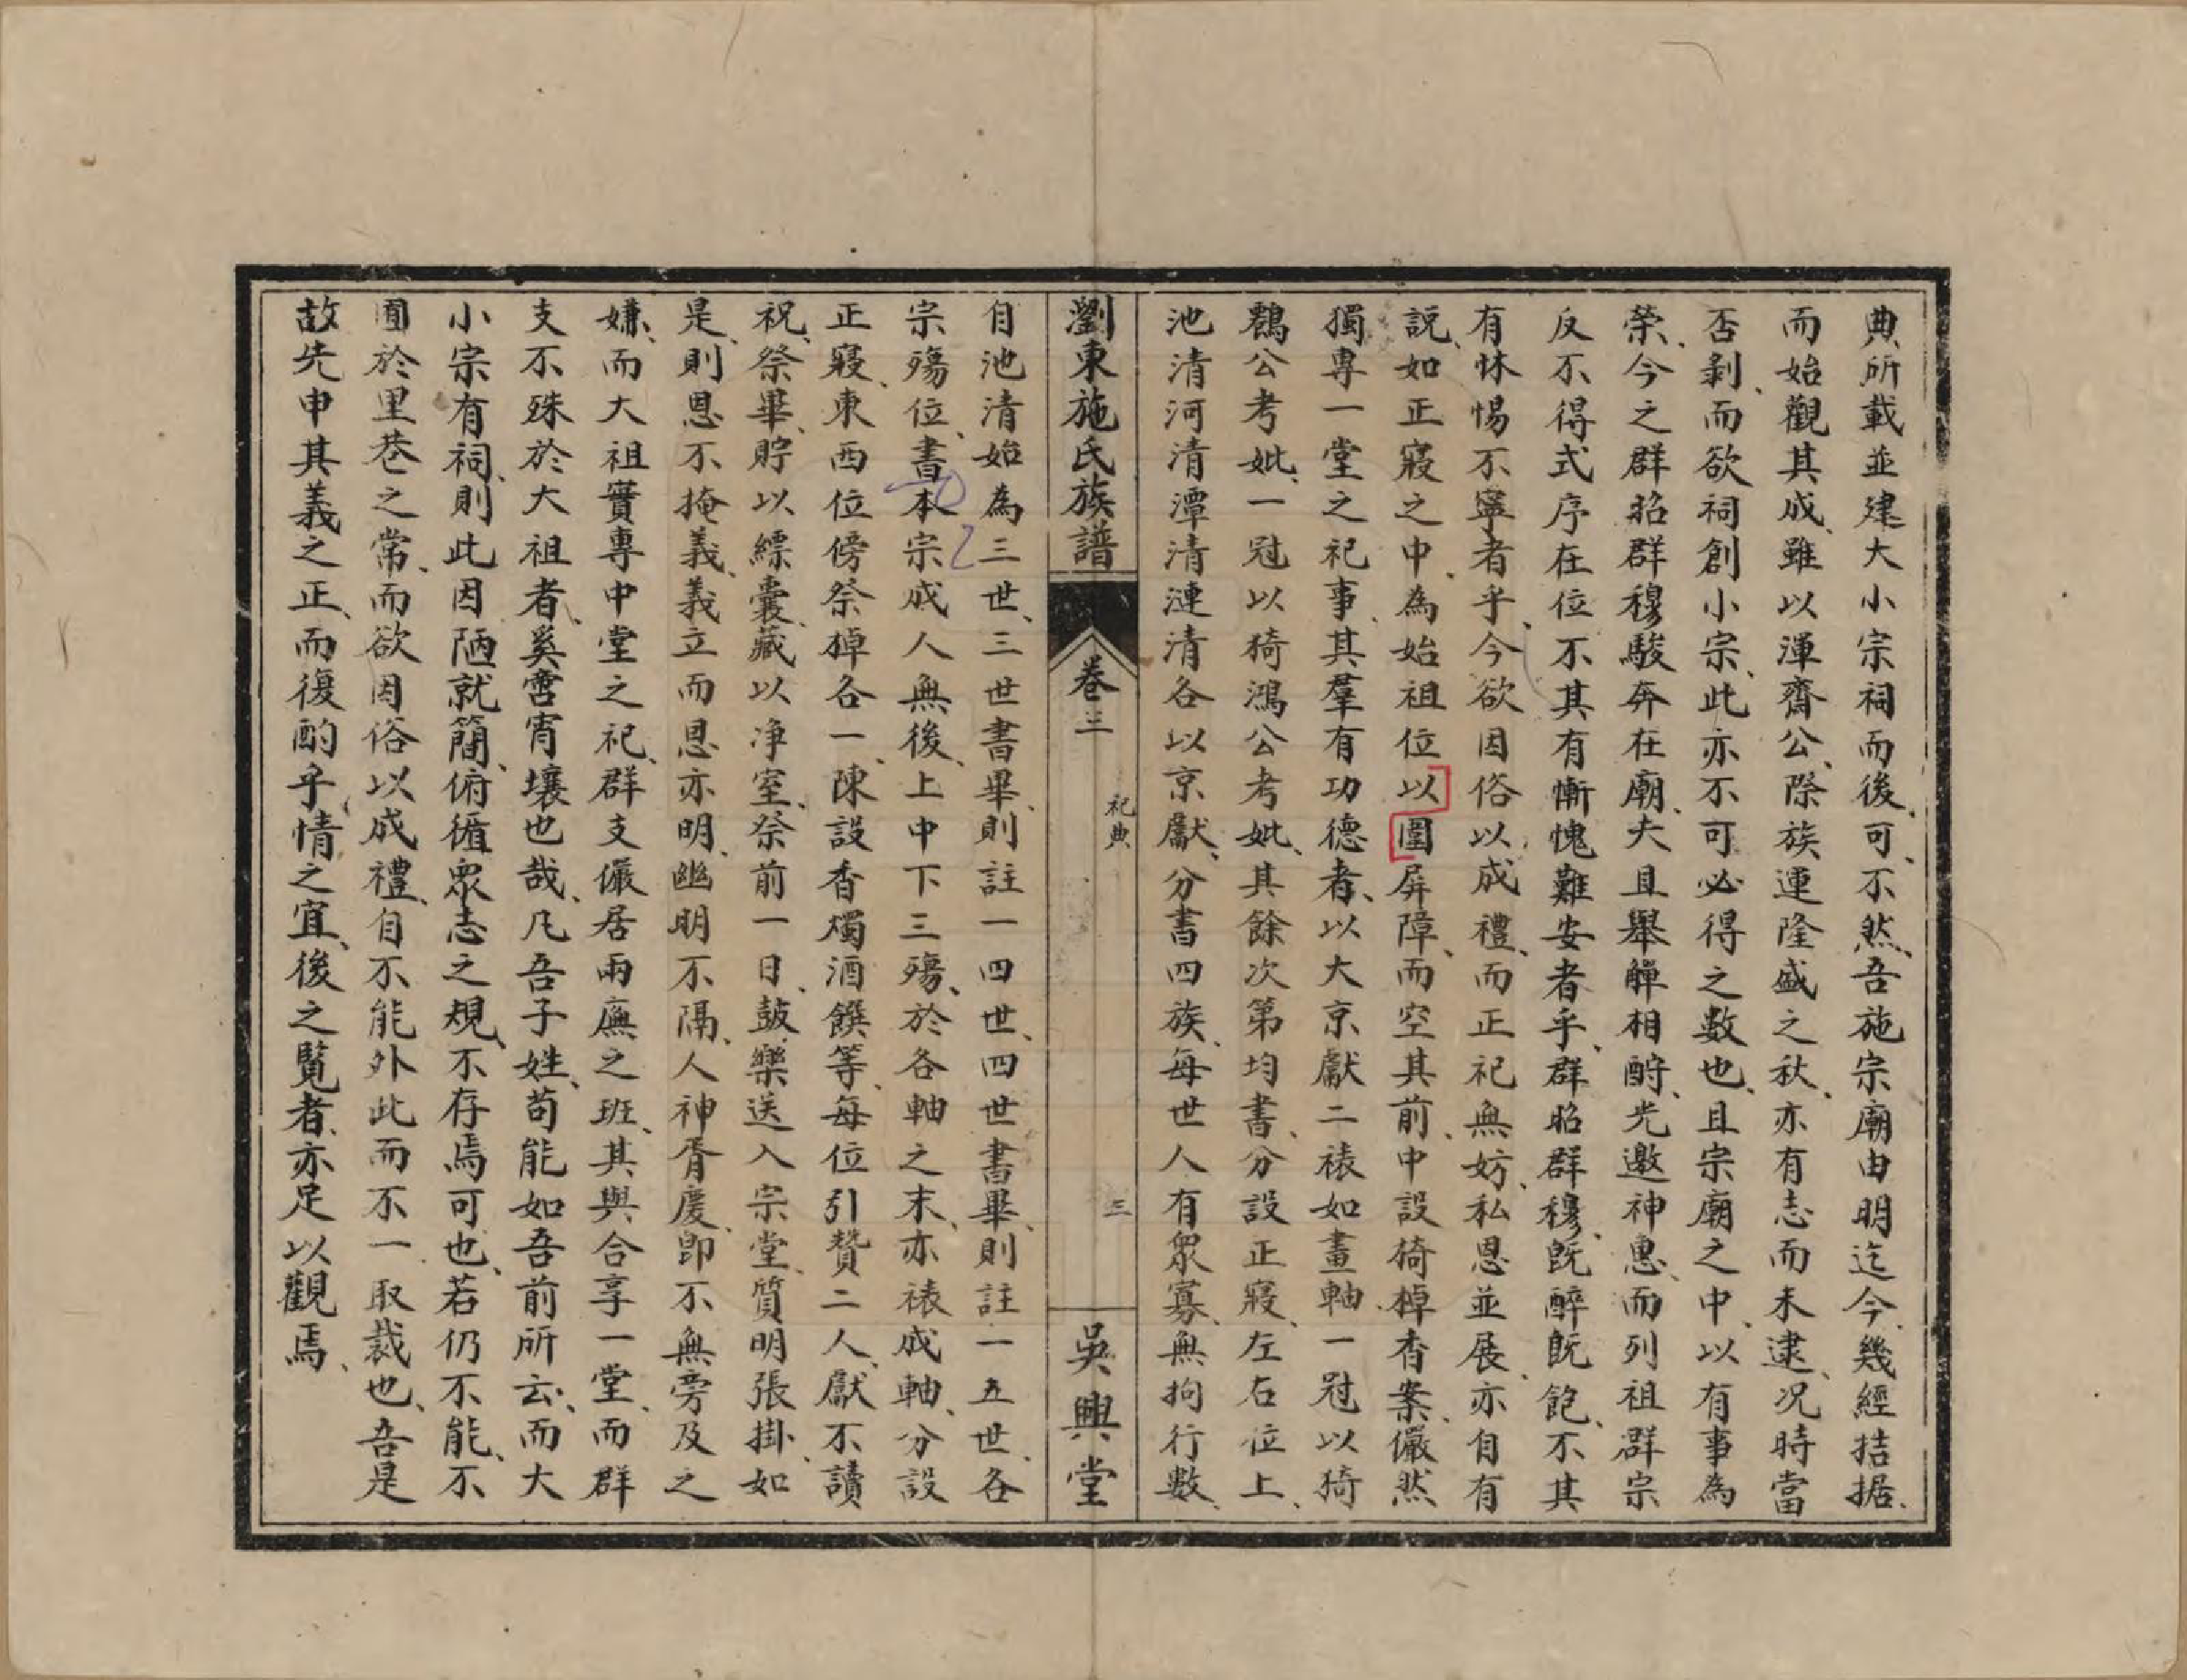 典所載並建大小宗祠而後、可、不然、吾施宗廟由明迄今、幾經拮据、
而始觀其成、雖以渾齋公、際族運隆盛之秋、亦有志而未逮、况時當
否剥、而欲祠創小宗、此亦不可必得之數也、且宗廟之中、以有事為
榮、今之群昭群穆駿奔在廟、夫且舉觶相酧、光邀神惠、而列祖群宗
反不得式序在位不其有慚愧難安者乎、群昭群穆、既醉既飽、不其
有怵惕不寧者乎、今欲因俗以成禮、而正祀無妨、私恩並展、亦自有
說、如正寢之中、為始祖位以圍屏障、而空其前、中設猗棹香案、儼然
獨專一堂之祀事、其羣有功德者、以大京獻二裱如畫軸、一冠以猗
鶴公考妣、一冠以猗鴻公考妣、其餘次第均書、分設正寢、左右位上、
池清河清潭清漣清各以京獻、分書四族、每世人有眾寡、無拘行數、
瀏東施氏族譜
卷三
祀典
三
吳興堂
自池清始為三世、三世書畢、則註一四世、四世書畢、則註一五世、各
宗殤位、書本宗成人無後、上中下三殤、於各軸之末、亦裱成軸、分設
正寢、東西位傍祭棹各一、陳設香燭酒饌等、每位引贊二人、獻不讀
祝、祭畢、貯以縹囊、藏以净室、祭前一日、鼓樂送入宗堂、質明張掛、如
是、則恩不掩義、義立而恩亦明、幽明不隔、人神胥慶、即不無旁及之
嫌、而大祖實專中堂之祀、群支儼居兩廡之班、其與合享一堂、而群
支不殊於大祖者、奚啻宵壤也哉、凡吾子姓、苟能如吾前所云、而大
小宗有祠、則此因陋就簡、俯循眾志之規、不存焉可也、若仍不能、不
囿於里巷之常、而欲因俗以成禮、自不能外此而不一取裁也、吾是
故先申其義之正、而復酌乎情之宜、後之覧者、亦足以觀焉、